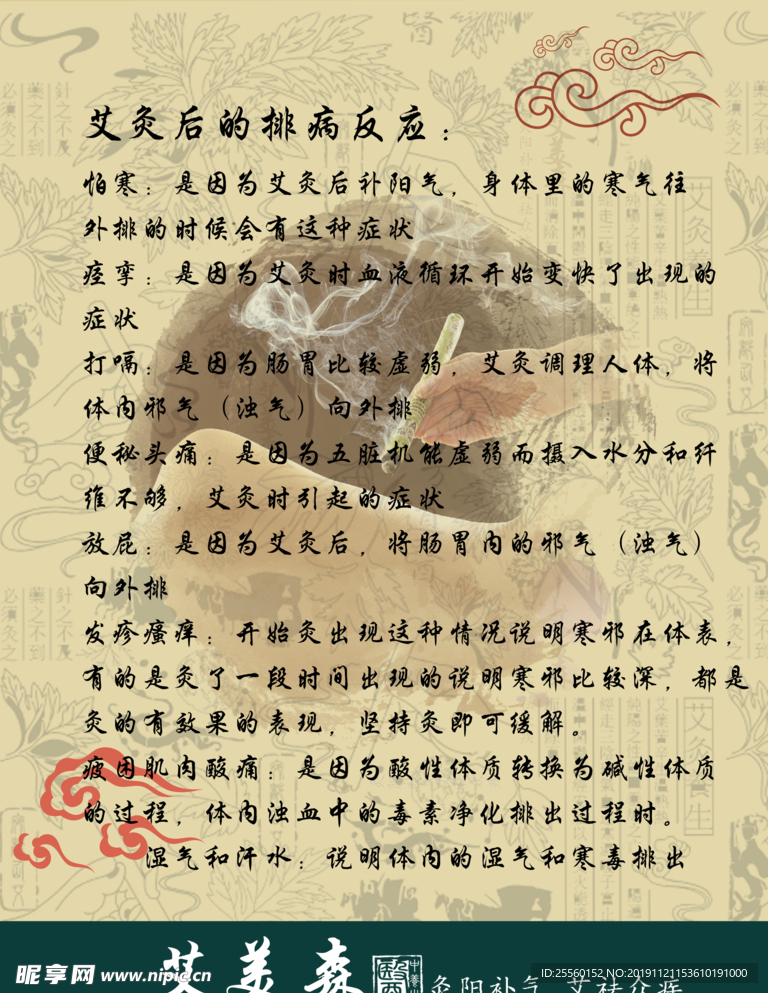 艾灸后的排病反应：
怕寒：是因为艾灸后补阳气，身体里的寒气往
外排的时候会有这种症状
痉挛：是因为艾灸时血液循环开始变快了出现的
症状
打嗝：是因为肠胃比较虚弱，艾灸调理人体，将
体内邪气（浊气）向外排
便秘头痛：是因为五脏机能虚弱而摄入水分和纤
维不够，艾灸时引起的症状
放屁：是因为艾灸后，将肠胃内的邪气（浊气）
向外排
发疹瘙痒：开始灸出现这种情况说明寒邪在体表，
有的是灸了一段时间出现的说明寒邪比较深，都是
灸的有效果的表现，坚持灸即可缓解。
疲困肌肉酸痛：是因为酸性体质转换为碱性体质
的过程，体内浊血中的毒素净化排出过程时。
湿气和汗水：说明体内的湿气和寒毒排出
艾美森
灸阳补气 艾祛众疾
昵享网 www.nipic.cn
ID:25560152 NO:20191121153610191000